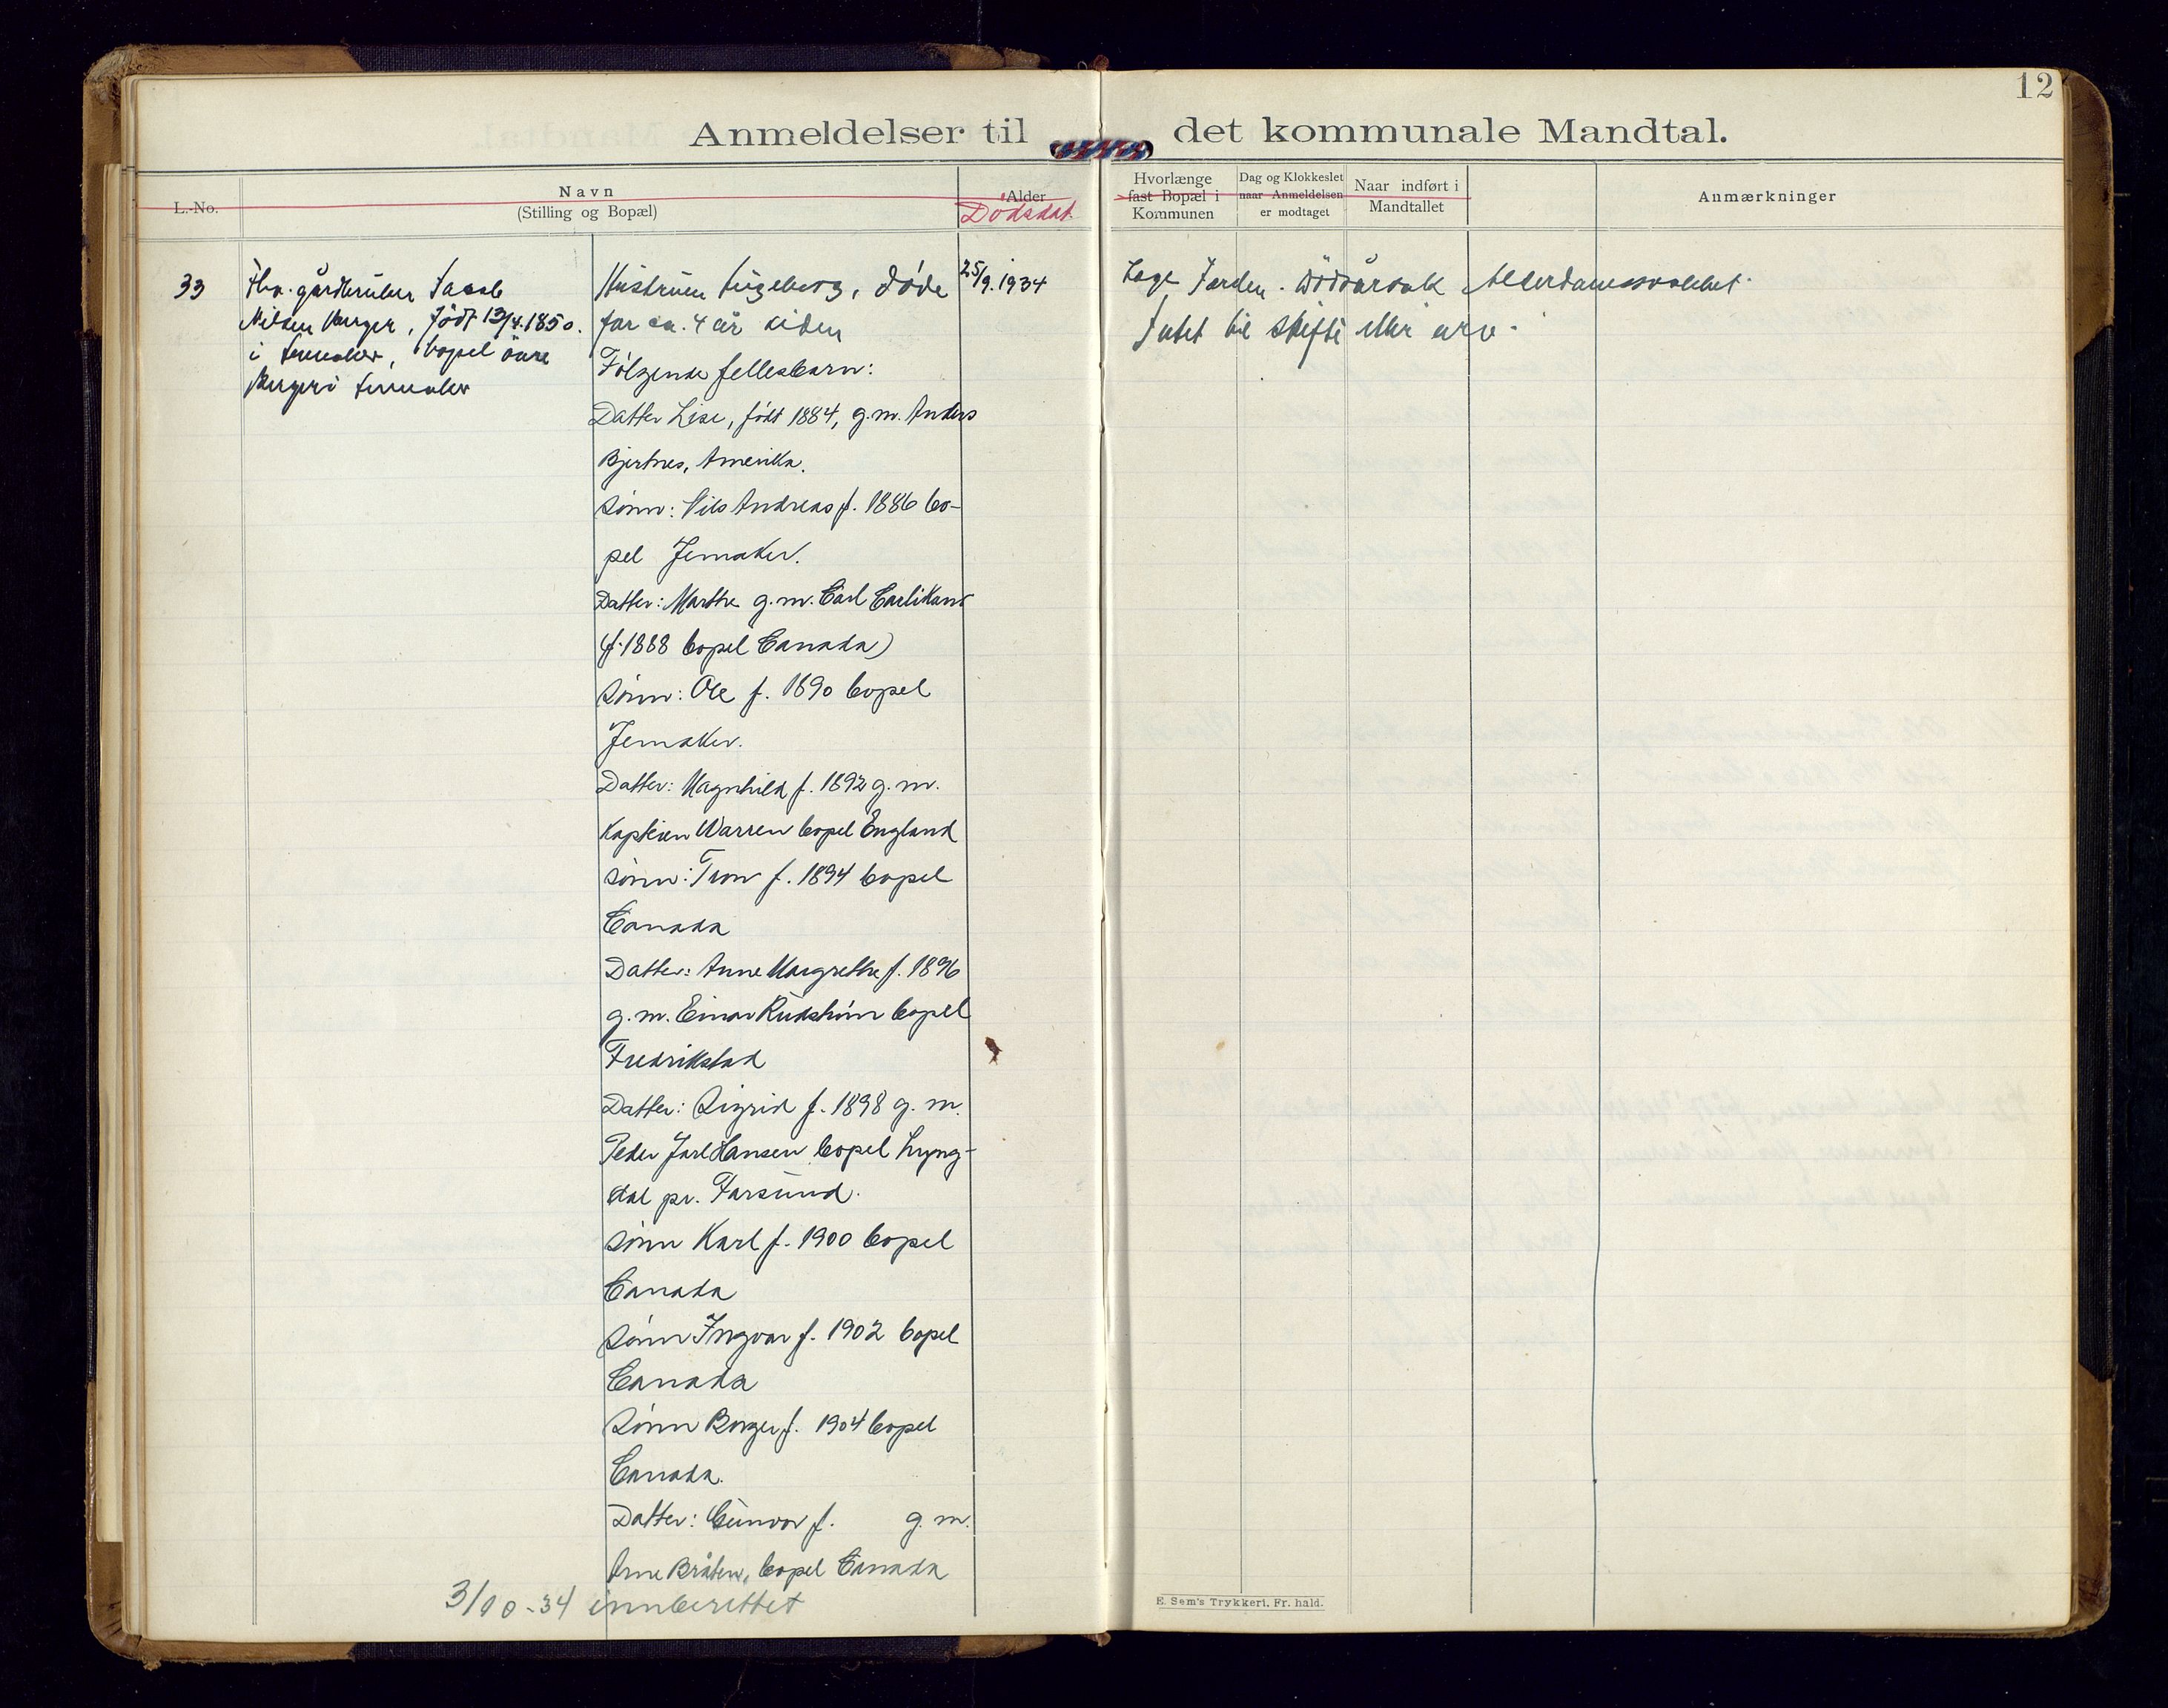 12
Anmeldelser til det kommunale Mandtal.
L.-No.
Navn
(Stilling og Bopæl)
Alder
Dødsdat.
Hvorlænge
fast Bopæl i
Kommunen
Dag og Klokkeslet
naar Anmeldelsen
er modtaget
Naar indført i
Mandtallet
Anmærkninger
33
Fhv. gårdbruker Jacob
Nilsen Berger, født 13/4.1850.
i Jevnaker, bopel øvre
Berger i Jevnaker
Hustruen Ingeborg, døde
for ca. 4 år siden
Følgende fellesbarn:
Datter Lise, født 1884, g.m. Anders
Bjertnes, Amerika.
Sønn: Nils Andreas f. 1886 bo-
pel Jevnaker.
Datter: Marthe g.m. Carl
(f. 1888 bopel Canada)
Sønn: Ole f. 1890 bopel
Jevnaker.
Datter: Magnhild f. 1892 g.m.
Kaptein Warren bopel England
Sønn: Tron f. 1894 bopel
Canada
Datter: Anne Margrethe f. 1896
g.m. Einar bopel
Fredrikstad
Datter: Sigrid f. 1898 g.m.
Peder Jarl Hansen bopel Lyng-
dal pr. Farsund.
Sønn Karl f. 1900 bopel
Canada
Sønn Ingvar f. 1902 bopel
Canada
Sønn Borger f. 1904 bopel
Canada.
Datter: Gunvor f. g.m.
Arne Bråten, bopel Canada
3/10-34 innberettet
25/9.1934
Lege Jorden. Dødsårsak Alderdomssvakhet.
Intet til skifte eller arv.
E. Sem's Trykkeri, Fr. hald.